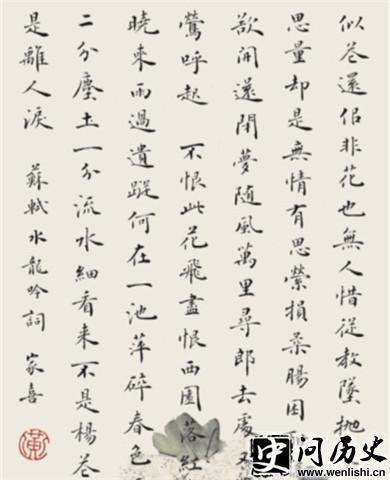 似花還佀非花也無人惜從教墜拋
思量却是無情有思縈損柔腸困
欲開還閉夢隨風萬里尋郎去處又
鶯呼起 不恨此花飛盡恨西園落紅
曉來雨過遺蹤何在一池萍碎春色
二分塵土一分流水細看來不是楊花
是離人淚 蘇軾水龍吟詞 家喜
问历史
www.wenlishi.cn